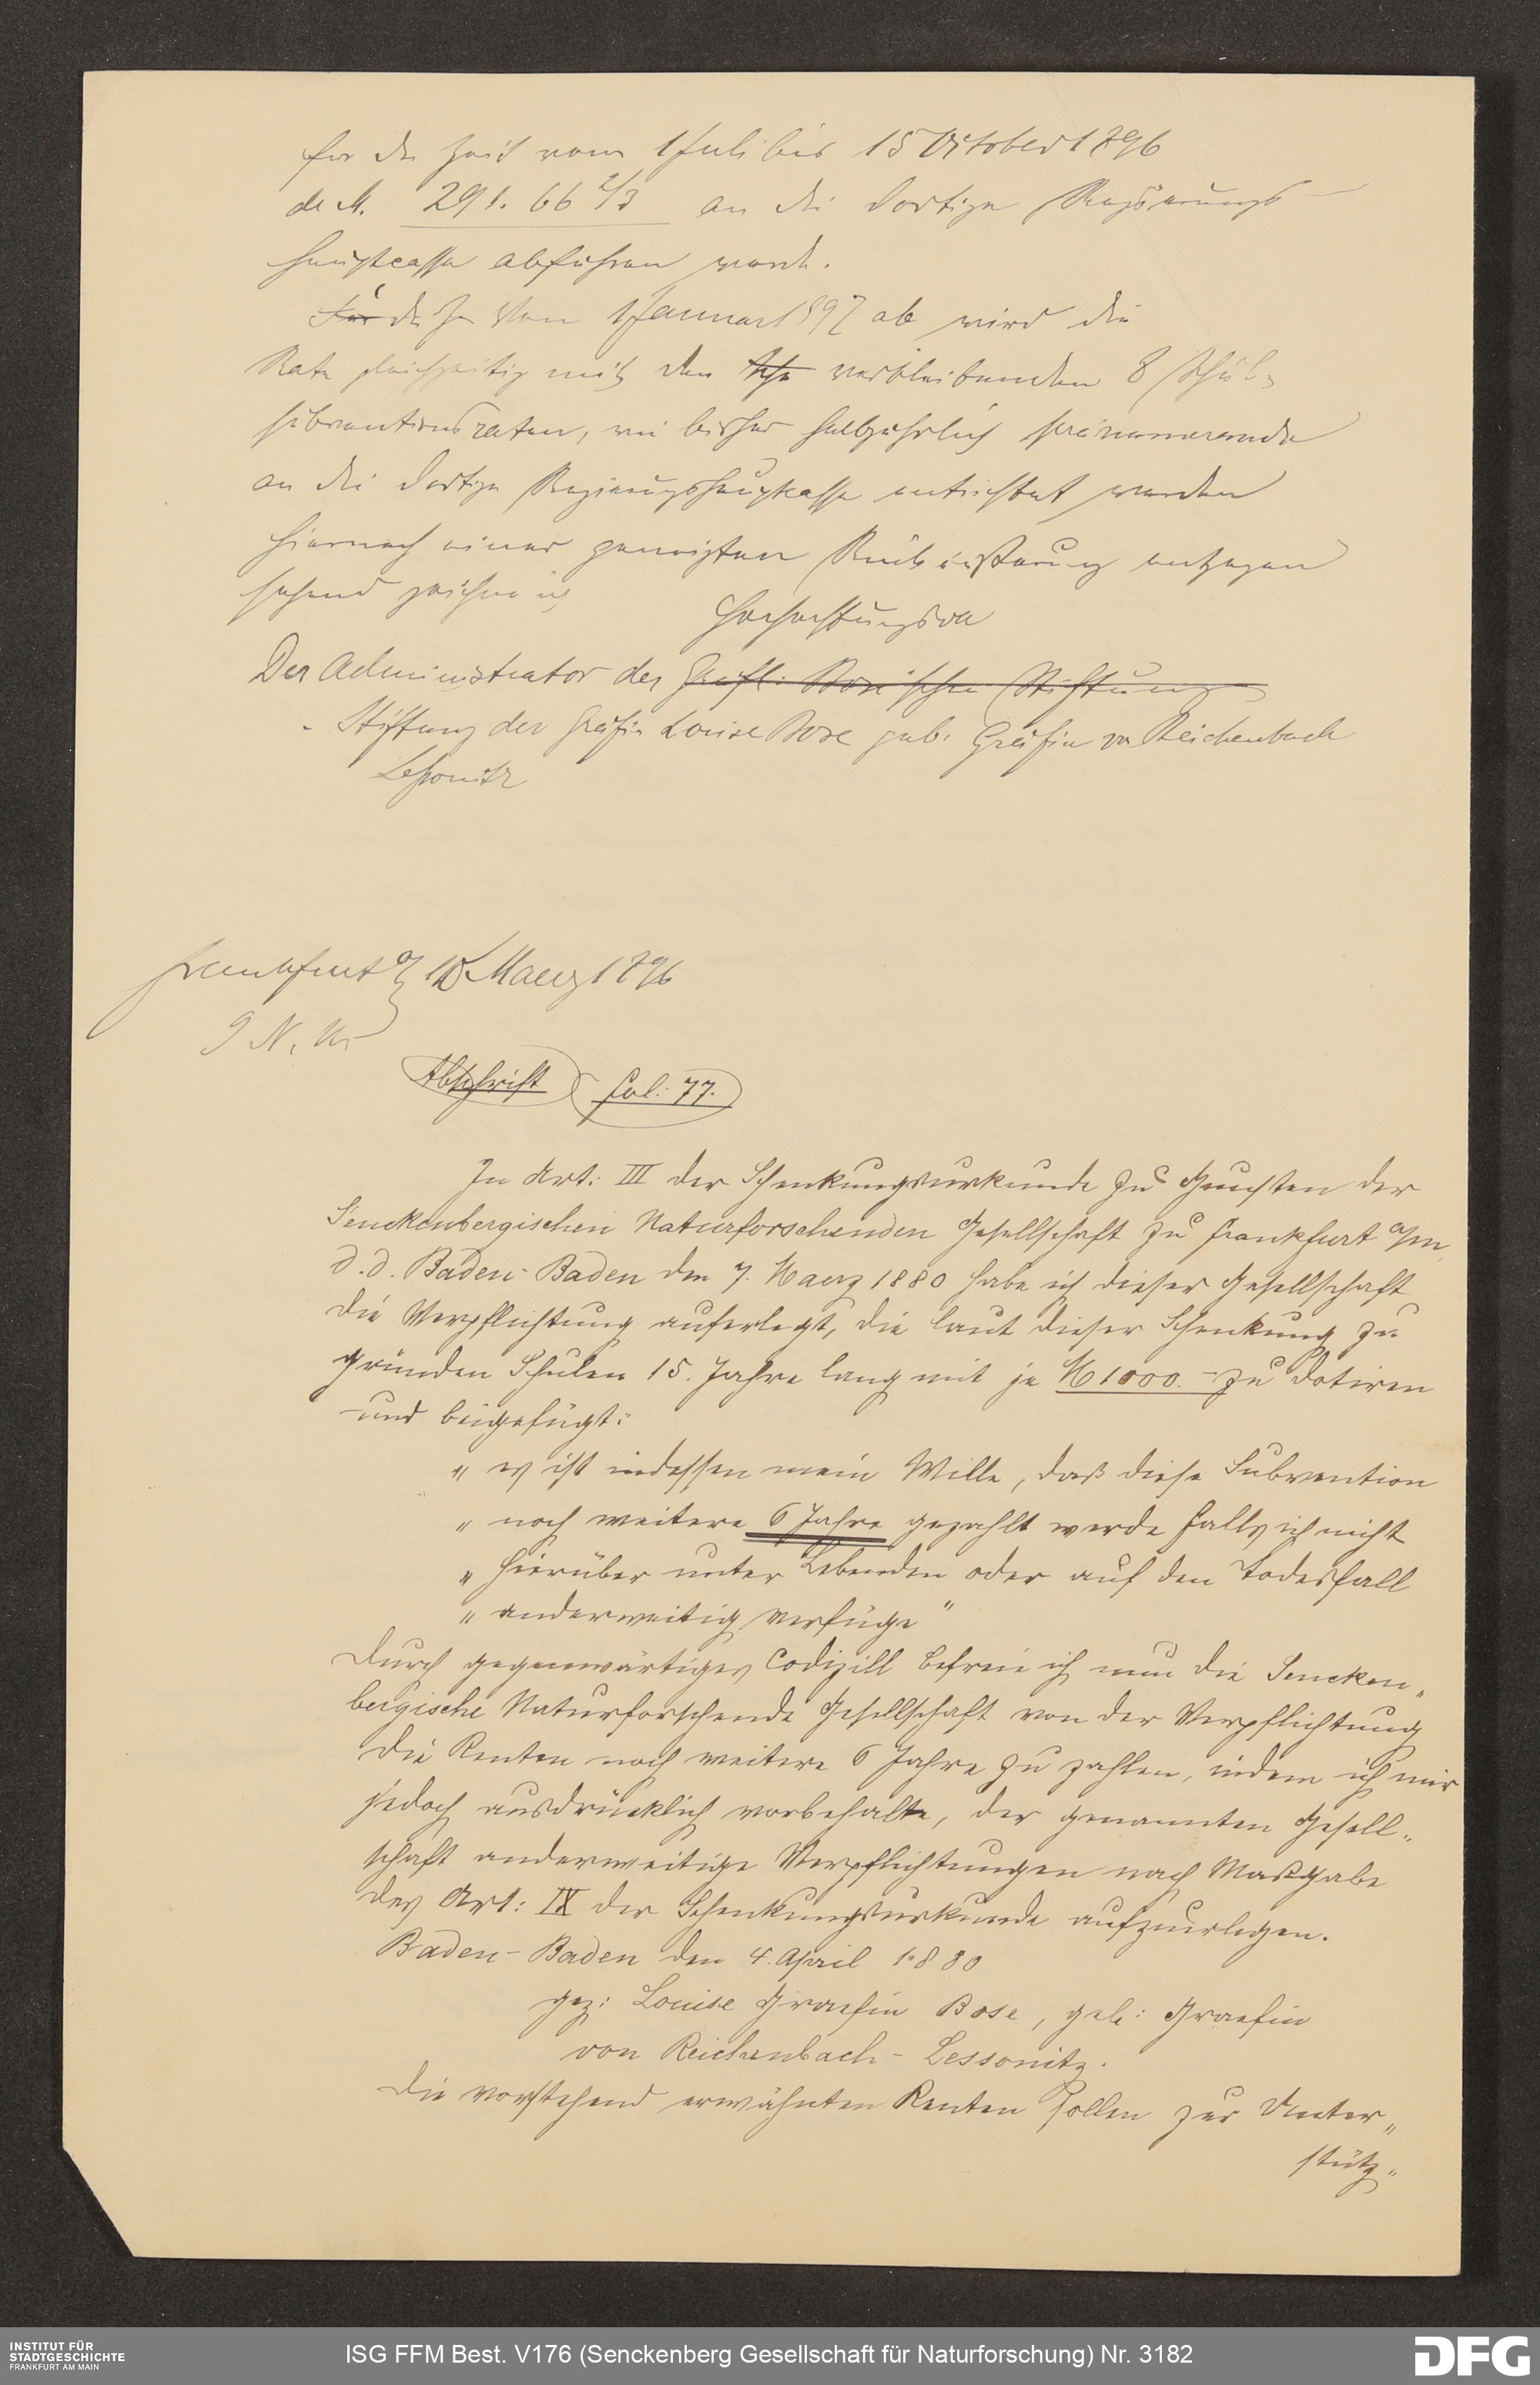 für die Zeit vom 1 Juli bis 15 October 1896
de M. 291. 66 2/3 an die dortige Regierungs
hauptcasse abführen werde.
Für die Vom 1 Januar 1897 ab wird die
Rate gleichzeitig mit den verbleibenden 8 Schul-
subventionsraten, wie bisher halbjährlich pränumerando
an die dortige Regierungshauptkasse entrichtet werden
Hiernach einer geneigten Rückäußerung entgegen
sehend zeichne ich
Hochachtungsvoll
Der Administrator der Gräfl. Bose'schen Stiftung
Stiftung der Gräfin Louise Bose geb. Gräfin von Reichenbach
Lessonitz
Frankfurt a/ 18 Maerz 1896
Abschrift fol: 77.
In Art: III der Schenkungsurkunde zu Gunsten der
Senckenbergischen Naturforschenden Gesellschaft zu Frankfurt a/m
d.d. Baden-Baden den 7. Maerz 1880 habe ich dieser Gesellschaft
die Verpflichtung auferlegt, die laut dieser Schenkung zu
gründen Schulen 15. Jahre lang mit je M 1000.- zu dotiren
und beigefügt:
„ es ist indessen mein Wille, daß diese Subvention
„ noch weitere 6 Jahre gezahlt werde falls ich nicht
„ hierüber unter Lebenden oder auf den Todesfall
„ anderweitig verfüge"
Durch gegenwärtiges Codizill befreie ich nun die Sencken„
bergische Naturforschende Gesellschaft von der Verpflichtung
die Renten noch weitere 6 Jahre zu zahlen, indem ich mir
jedoch ausdrücklich vorbehalte, der genannten Gesell„
schaft anderweitige Verpflichtungen nach Maßgabe
des Art: IX der Schenkungsurkunde aufzuerlegen.
Baden-Baden den 4. April 1880
gez: Louise Graefin Bose, geb: Graefin
von Reichenbach-Lessonitz.
Die vorstehend erwähnten Renten sollen zur Unter„
stütz„
INSTITUT FÜR
STADTGESCHICHTE
FRANKFURT AM MAIN
ISG FFM Best. V176 (Senckenberg Gesellschaft für Naturforschung) Nr. 3182
DFG